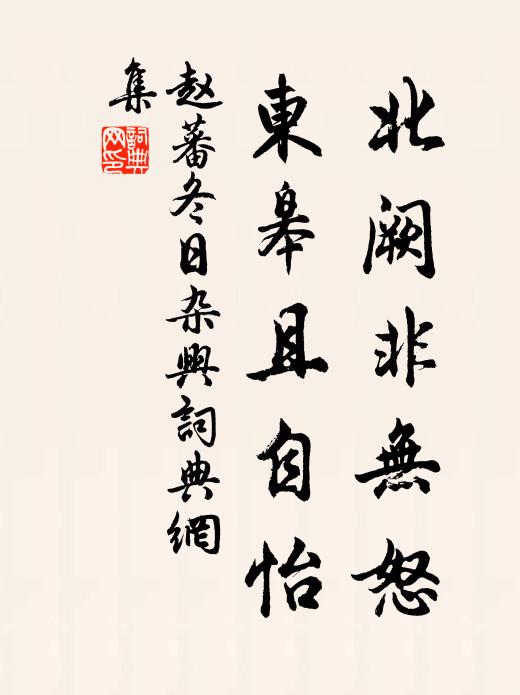 北阙非無怒
東皋且自怡
赵蕃冬日杂興詞典網
集
詞典
网印